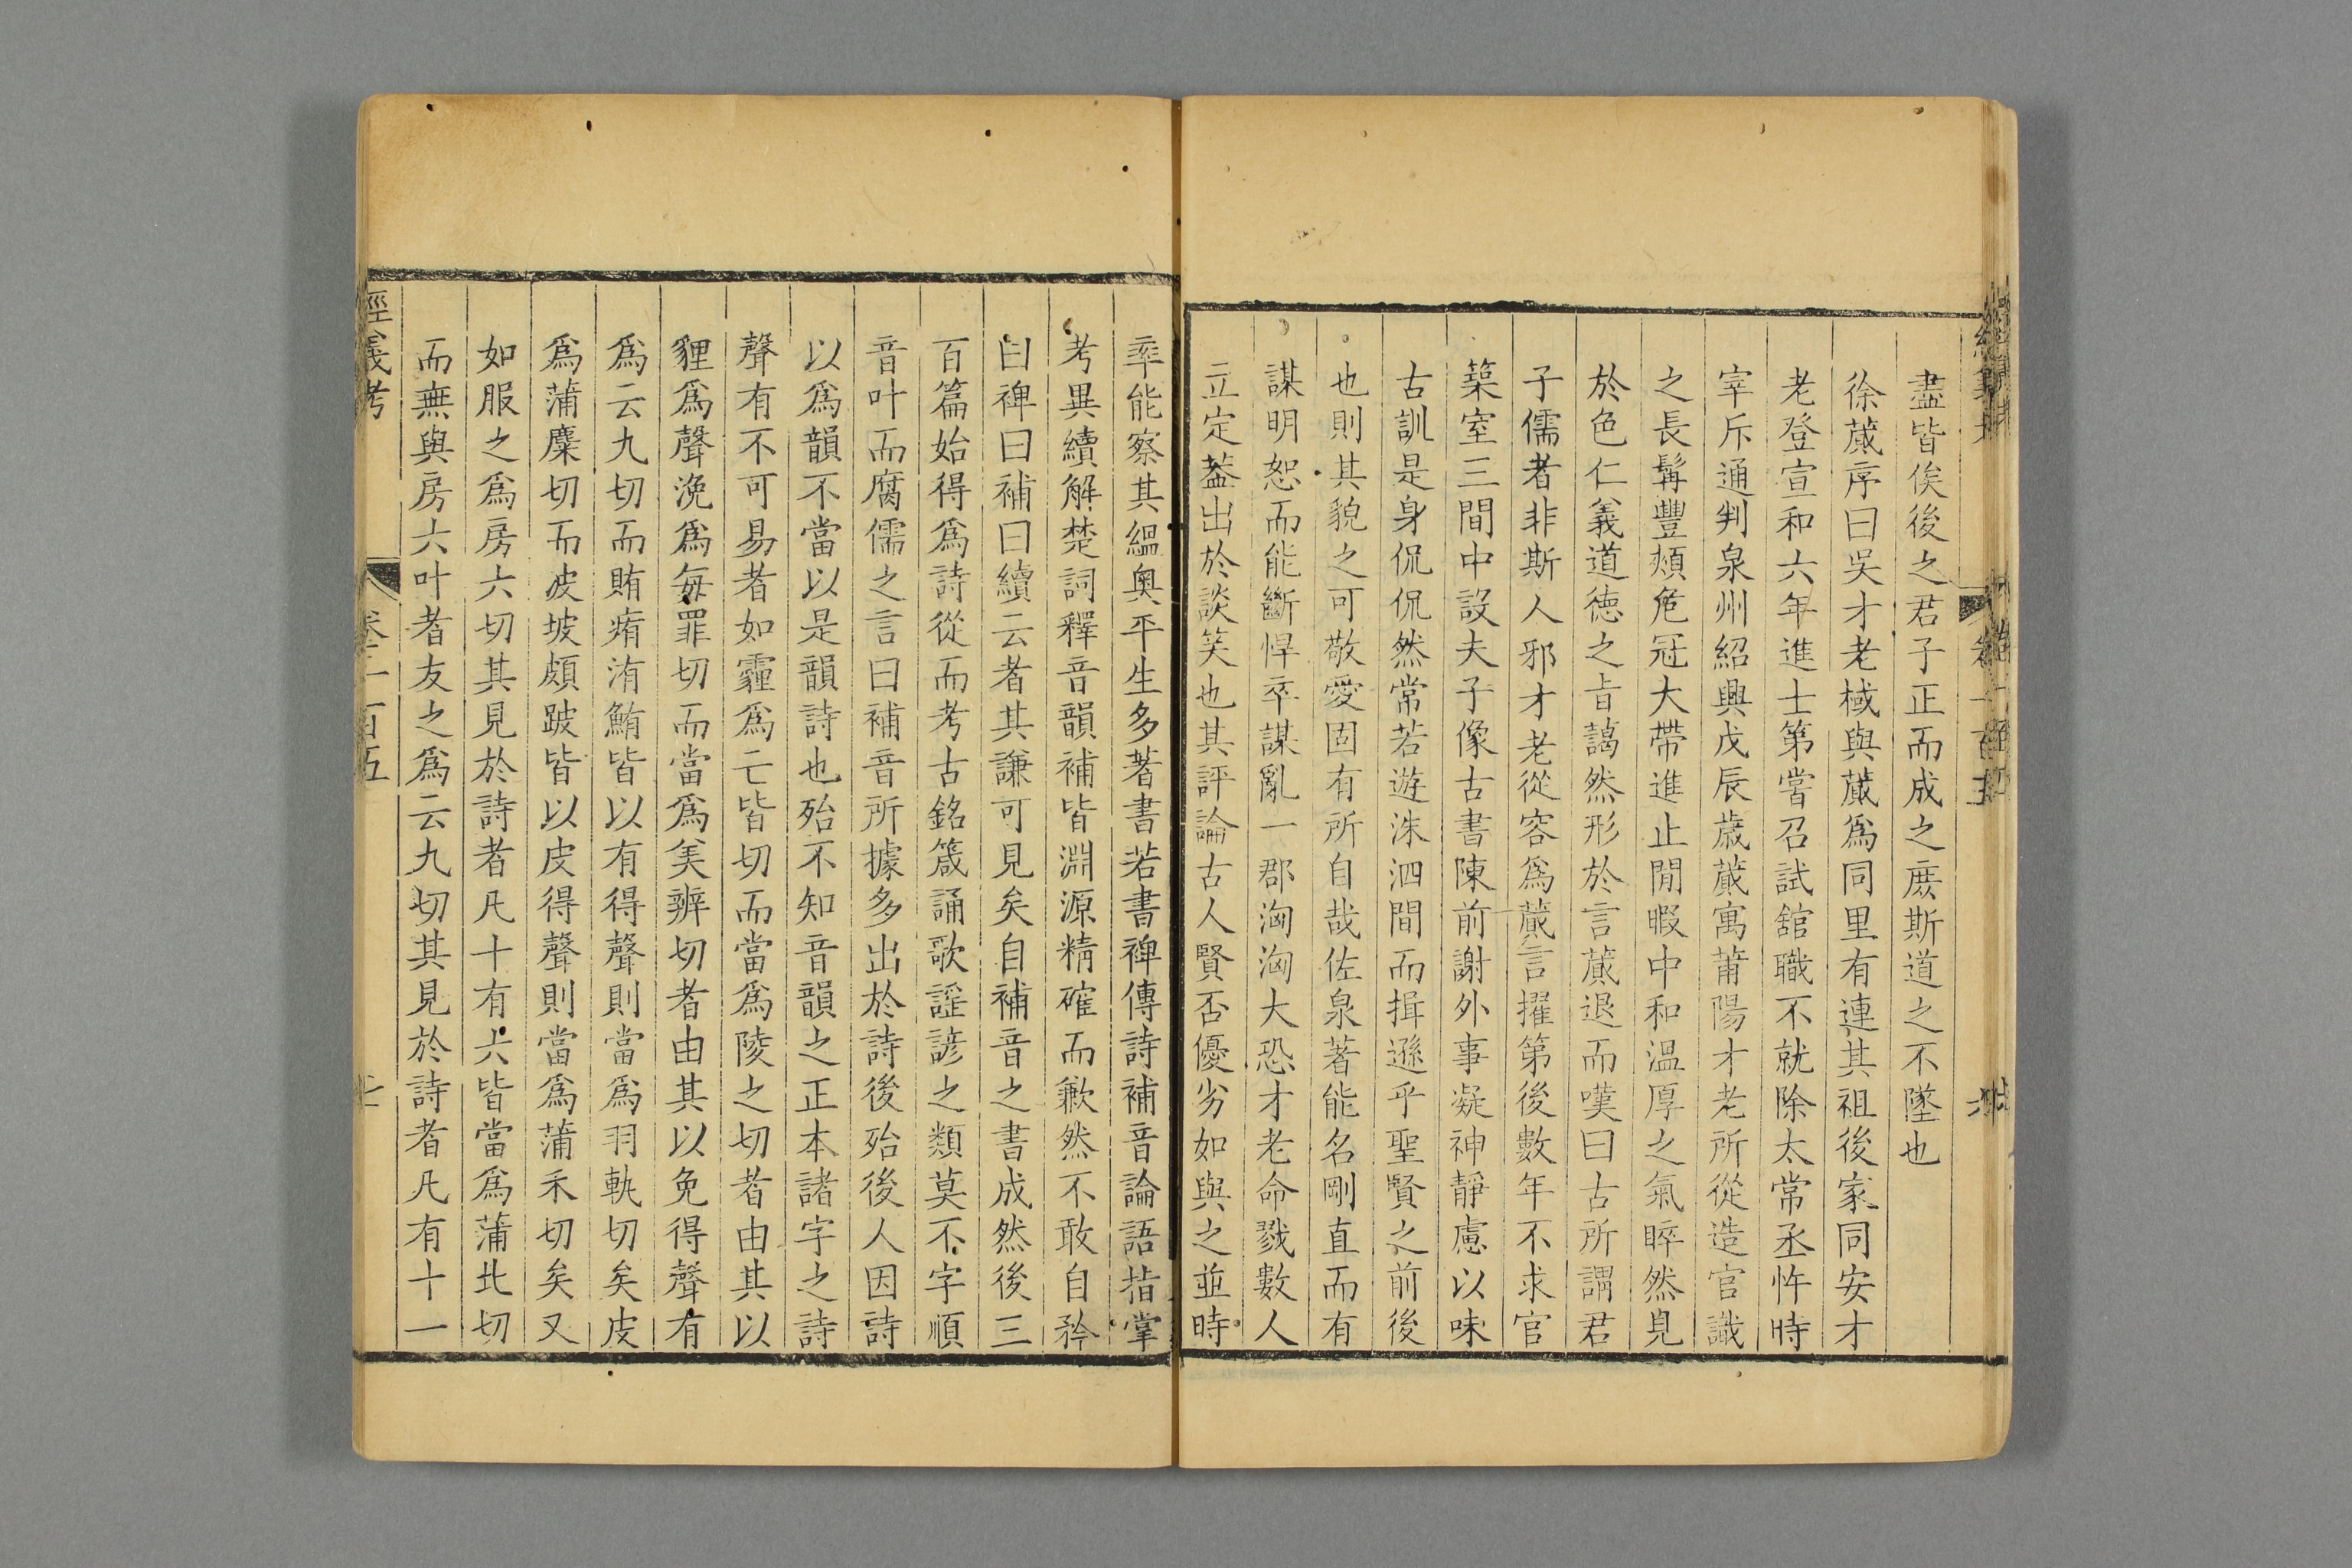 盡皆俟後之君子正而成之庶斯道之不墜也
徐蕆序曰吳才老棫與蕆爲同里有連其祖後家同安才
老登宣和六年進士第嘗召試舘職不就除太常丞忤時
宰斥通判泉州紹興戊辰歳蕆寓莆陽才老所從造官識
之長髯豐頰危冠大帶進止閒暇中和溫厚之氣睟然見
於色仁義道德之旨藹然形於言蕆退而嘆曰古所謂君
子儒者非斯人邪才老從容爲蕆言擢第後數年不求官
築室三間中設夫子像古書陳前謝外事凝神靜慮以味
古訓是身侃侃然常若遊洙泗間而揖遜乎聖賢之前後
也則其貌之可敬愛固有所自哉佐泉著能名剛直而有
謀明恕而能斷悍卒謀亂一郡洶洶大恐才老命戮數人
立定葢出於談笑也其評論古人賢否優劣如與之並時
率能察其縕奥平生多著書若書裨傳詩補音論語指掌
考異續解楚詞釋音韻補皆淵源精確而歉然不敢自矜
曰裨曰補曰續云者其謙可見矣自補音之書成然後三
百篇始得爲詩從而考古銘箴誦歌謡諺之類莫不字順
音叶而腐儒之言曰補音所據多出於詩後殆後人因詩
以爲韻不當以是韻詩也殆不知音韻之正本諸字之詩
聲有不可易者如霾爲亡皆切而當爲陵之切者由其以
貍爲聲浼爲每罪切而當爲美辨切者由其以免得聲有
爲云九切而賄痏洧鮪皆以有得聲則當爲羽軌切矣皮
爲蒲糜切而波坡頗跛皆以皮得聲則當爲蒲禾切矣又
如服之爲房六切其見於詩者凡十有六皆當爲蒲北切
而無與房六叶者友之爲云九切其見於詩者凡有十一
經義考
卷一百五
七